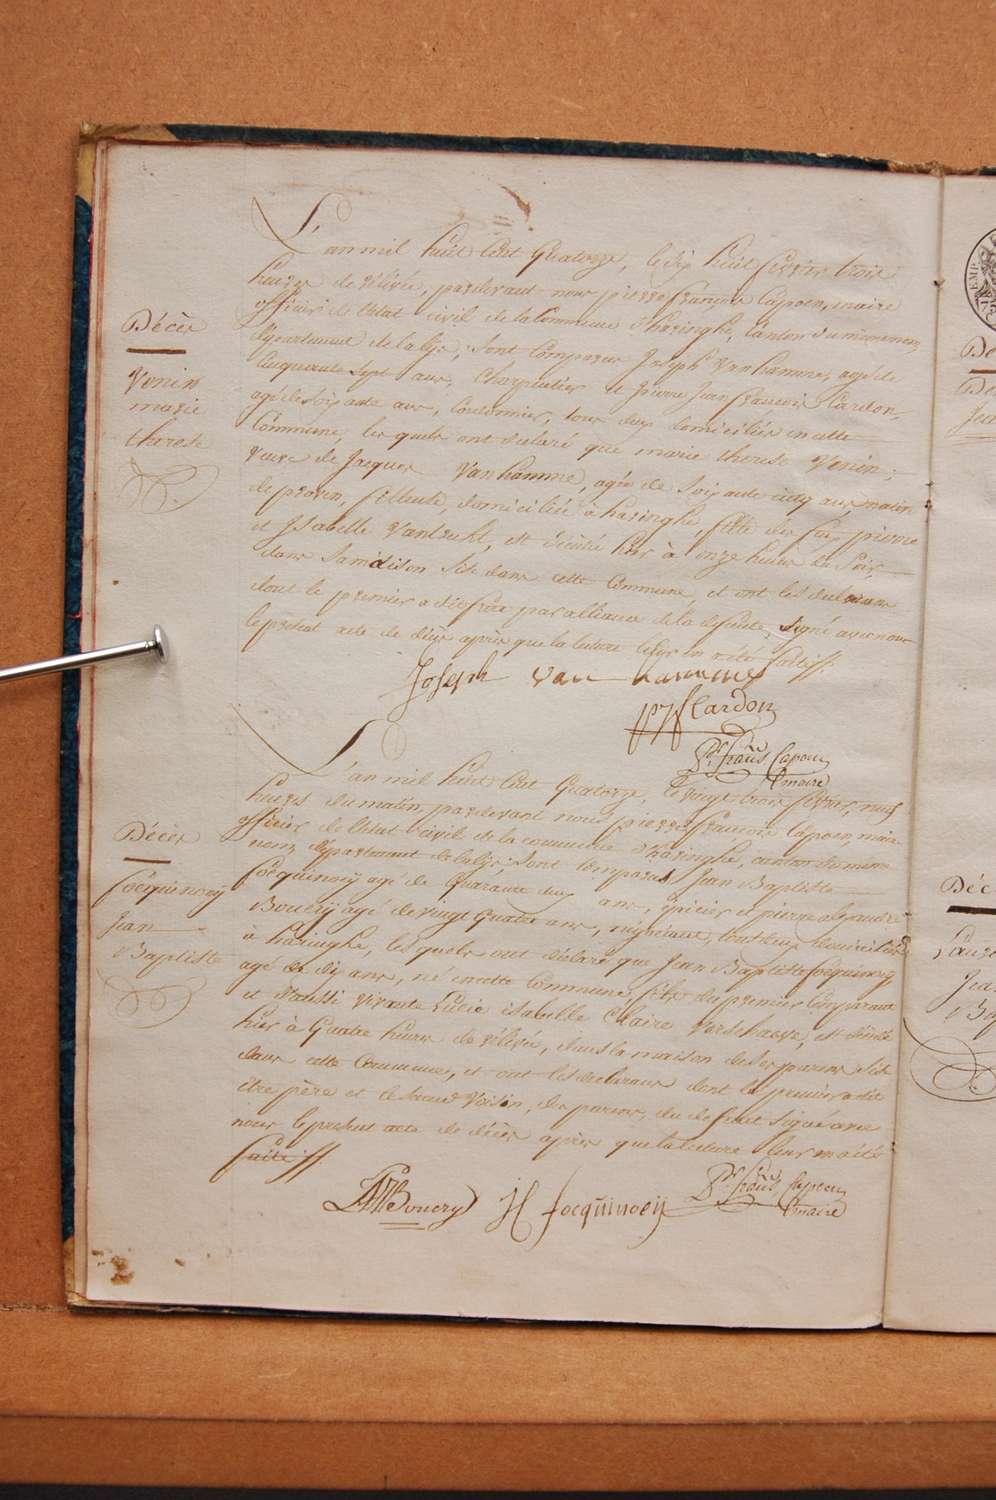 L'an mil huit Cent Quatorze, le dix huit fevrier trois
heures de rélévée, pardevant nous pierre françois Capoen, maire
officier de l'état civil de la Commune d'haringhe, Canton du même nom,
Département de la lijs; sont Comparus Joseph Vanhamme, agé de
Cinquante Sept ans, Charpentier et pierre Jean françois Cardon,
agé de soixante ans, Cordonnier, tous deux domiciliés en cette
Commune, les quels ont déclaré que marie therese Venin,
veuve de Jacques Vanhamme, agée de Soixante cinq ans, native
de proven, fileuse, domiciliée à haringhe, fille de feu pierre
et Isabelle, est décédée hier à onze heures du Soir,
dans Sa maison Site dans cette Commune, et ont les declarans
dont le premier a dit frère par alliance de la défunte, Signé avec nous
le présent acte de décès après que la lecture leur en a été faite
Joseph van hamme
pjf Cardon
pre francs Capoen
maire
Décès
Venin
marie
therese
L'an mil huit Cent Quatorze, le vingt trois fevrier, neuf
heures du matin, pardevant nous pierre françois Capoen, maire
officier de l'état civil de la commune d'haringhe, canton du même
nom, département de la lijs; sont comparus Jean Baptiste
Cocquinoeij agé de Quarante deux ans, épicier et pierre alexandre
Bouery agé de vingt Quatre ans, négociant, tous deux domiciliés
à haringhe, les quels ont déclaré que Jean Baptiste Cocquinoeij
agé de dix ans, né en cette Commune, fils du premier Comparant
et d'aussi vivante Lucie isabelle Claire Verschaeve, est décédé
hier à Quatre heures de rélévée, dans la maison de Ses parens Site
dans cette Commune, et ont les declarans dont le premier a dit
être père et le second Voisin, des parens, du defunt Signé avec
nous le présent acte de décès après que la lecture leur en a été
faite
Bouery JB Cocquinoeij pre francs Capoen
maire
Décès
Cocquinoeij
Jean
Baptiste
Jean